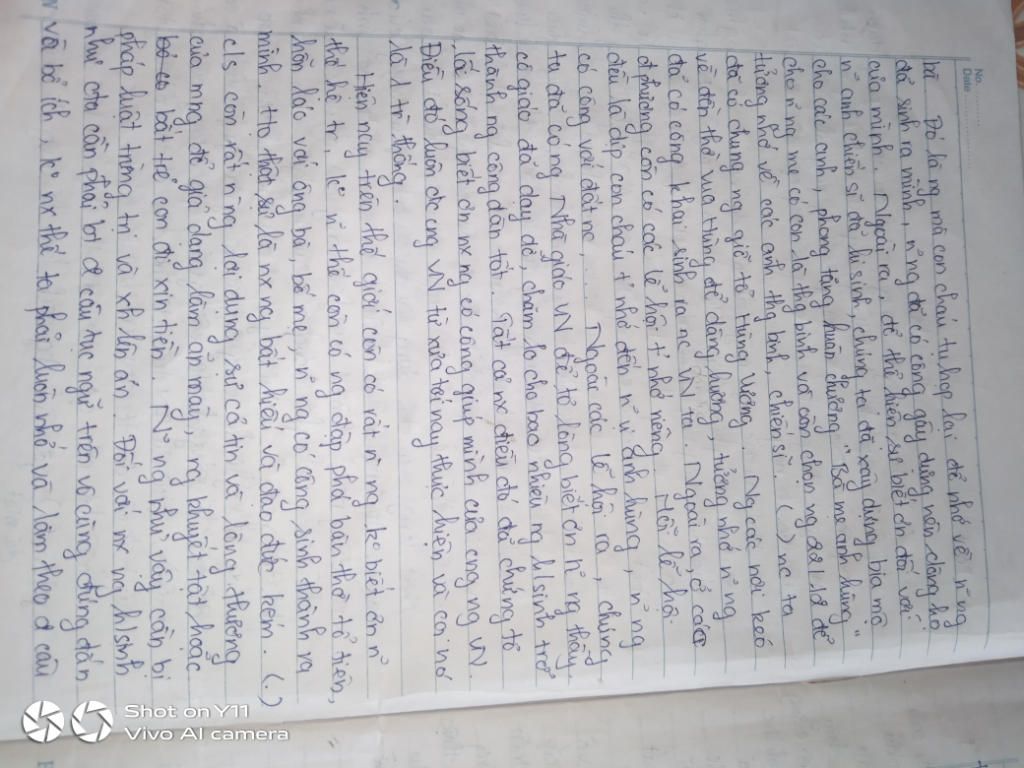 No.
Date
bà. Đó là ng mà con cháu tụ họp lại để nhớ về n~ ng
đã sinh ra mình, n~ ng đã có công gây dựng nên dòng họ
của mình. Ngoài ra, để thể hiện sự biết ơn đối với
n~ anh chiến sĩ đã hi sinh, chúng ta đã xây dựng bia mộ
cho các anh, phong tặng huân chương "Bà mẹ anh hùng"
cho n~ ng mẹ có con là thg binh và con chọn ng 22/12 để
tưởng nhớ về các anh thg binh, chiến sĩ. ( ) nc ta
đã có chung ng giỗ tổ Hùng Vương. Ng các nơi kéo
về đền thờ vua Hùng để dâng hương, tưởng nhớ n~ ng
đã có công khai sinh ra nc VN ta. Ngoài ra, ở các
đ phương còn có các lễ hội t' nhớ riêng. Mỗi lễ hội
đều là dịp con cháu t' nhớ đến n~ v anh hùng, n~ ng
có công với đất nc,... Ngoài các lễ hội ra, chúng
ta đã có ng Nhà giáo VN để tỏ lòng biết ơn n~ ng thầy,
cô giáo đã dạy dỗ, chăm lo cho bao nhiêu ng h/sinh trở
thành ng công dân tốt. Tất cả nx điều đó đã chứng tỏ
lối sống biết ơn nx ng có công giúp mình của cng ng VN.
Điều đó luôn đc cng VN từ xưa tới nay thực hiện và coi nó
là 1 tr thống.
Hiện nay trên thế giới còn có rất n~ ng ko biết ơn n~
thế hệ tr, ko n~ thế còn có ng đập phá bàn thờ tổ tiên,
hỗn láo với ông bà, bố mẹ, n~ ng có công sinh thành ra
mình. Họ thật sự là nx ng bất hiếu và đạo đức kém. (.)
c/s còn rất n~ ng lợi dụng sự cả tin và lòng thương
của mng để giả dạng làm ăn mày, ng khuyết tật hoặc
bắt trẻ con đi xin tiền. N~ ng như vậy cần bị
pháp luật trừng trị và xh lên án. Đối với nx ng h/sinh
như cta cần phải bt câu tục ngữ trên vô cùng đúng đắn
và bổ ích, ko nx thế ta phải luôn nhớ và làm theo câu
Shot on Y11
Vivo AI camera